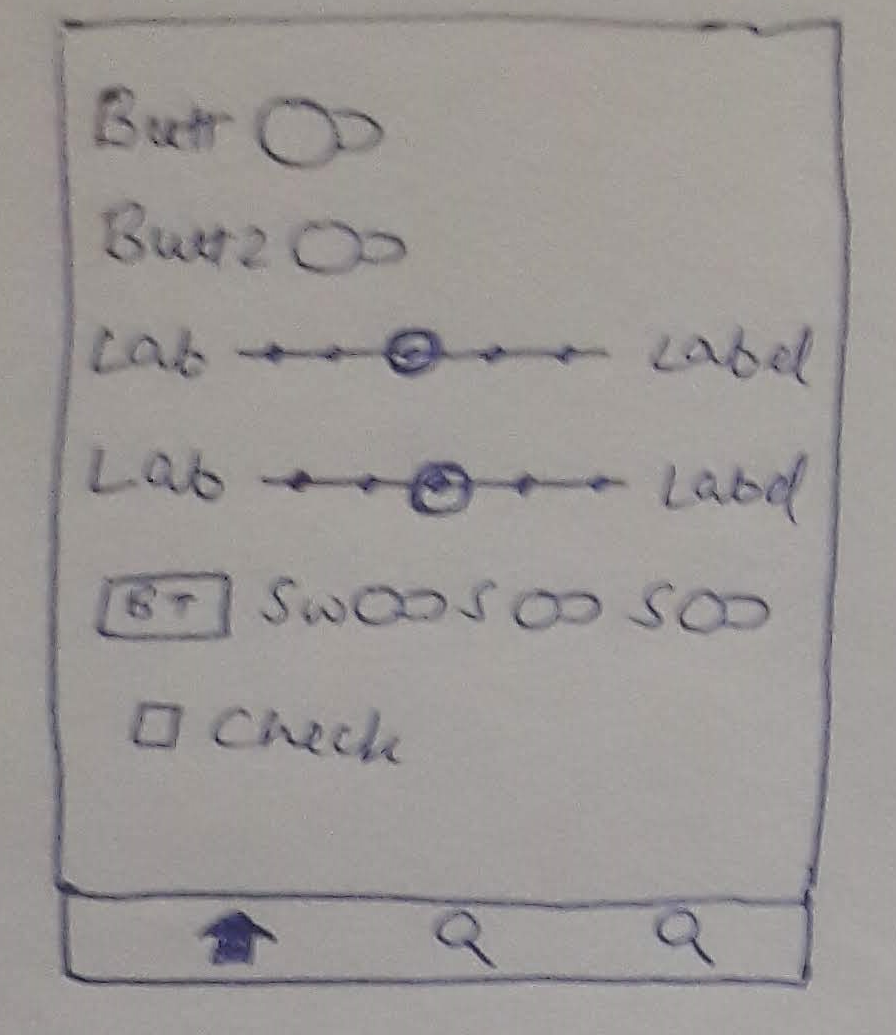 Butt
Butt2
Lab Label
Lab Label
BT Sw S S
Check